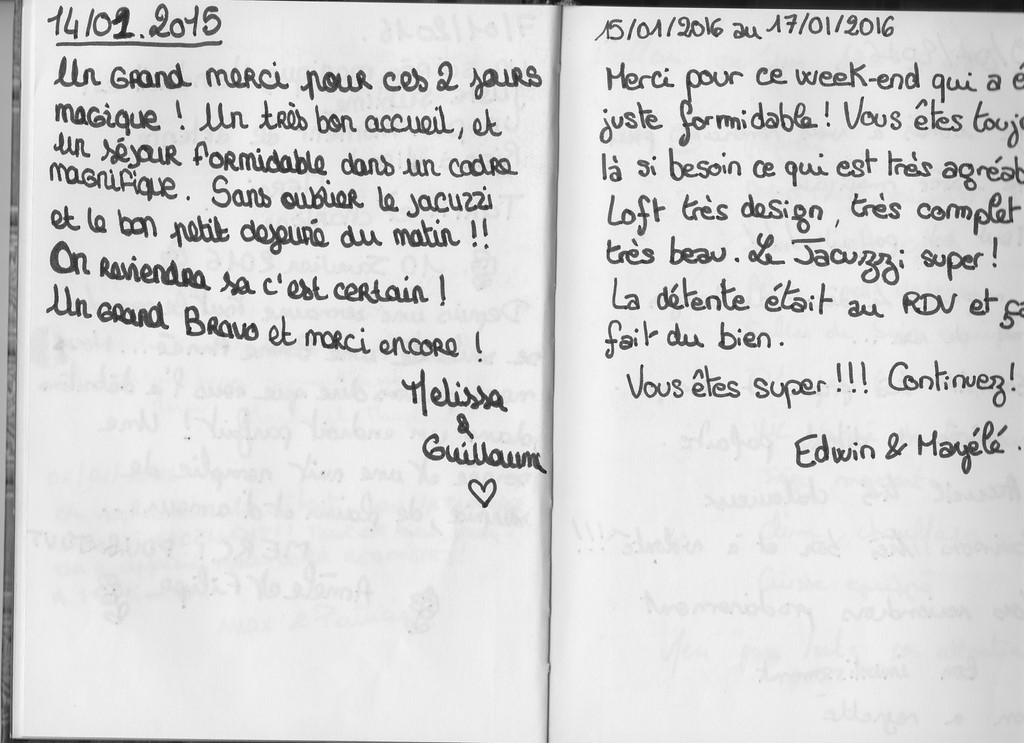 14/01.2015
Un GRAND merci pour ces 2 jours
magique ! Un très bon accueil, et
un séjour formidable dans un cadre
magnifique. Sans oublier le jacuzzi
et le bon petit dejeuné du matin !!
On reviendra sa c'est certain !
Un GRAND BRAVO et merci encore !
Melissa
&
Guillaum
♡
15/01/2016 au 17/01/2016
Merci pour ce week-end qui a é
juste formidable ! Vous êtes toujo
là si besoin ce qui est très agréab
Loft très design, très complet
très beau. Le Jacuzzi super !
La détente était au RDV et ça
fait du bien.
Vous êtes super !!! Continuez !
Edwin & Mayélé.